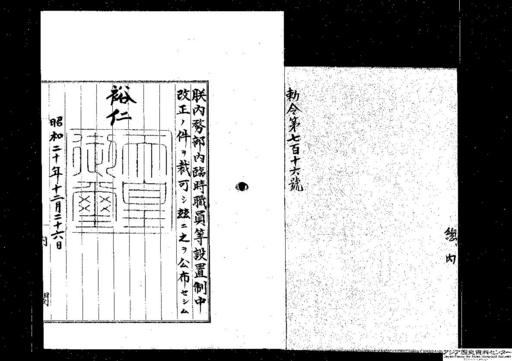 勅令第七百十六號
總内
朕内務部内臨時職員等設置制中
改正ノ件ヲ裁可シ玆ニ之ヲ公布セシム
裕仁
天皇御璽
昭和二十年十二月二十六日
内閣
アジア歴史資料センター